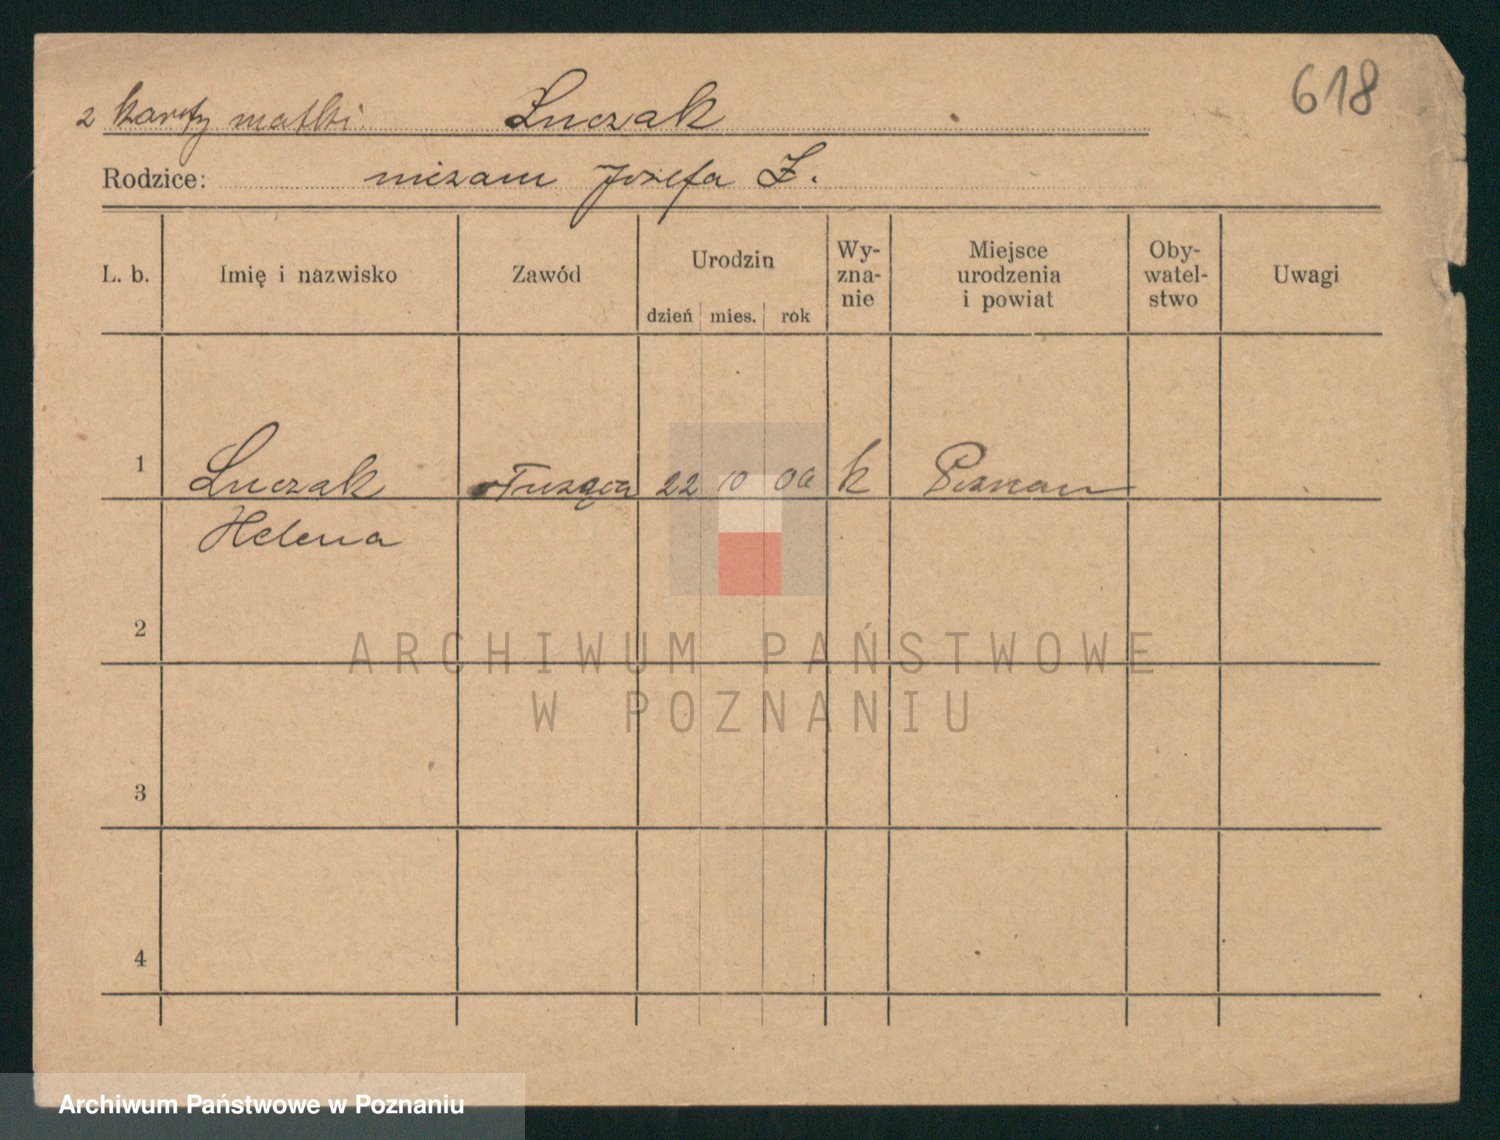 618
z karty matki Łuczak
Rodzice: niezam Józefa Ł.
L. b. Imię i nazwisko Zawód Urodzin dzień mies. rok Wy-zna-nie Miejsce urodzenia i powiat Oby-watel-stwo Uwagi
1 Łuczak służąca 22 10 06 k Poznań
Helena
2
3
4
ARCHIWUM PAŃSTWOWE
W POZNANIU
Archiwum Państwowe w Poznaniu